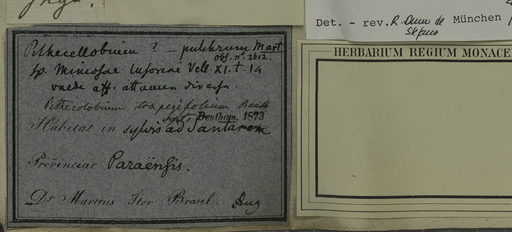 Det. - rev. R. Dunn de München
HERBARIUM REGIUM MONACE
Pithecellobium ? - pulchrum Mart
Obs. nº 2612.
Sp. Mimosae Vell. XI. t. 14
valde aff. attamen diversa.
Pithecolobium trapezifolium Benth
Bentham. 1873
Habitat in sylvis ad
Provinciae Paraënsis.
Dr Martius Iter Brasil. Aug